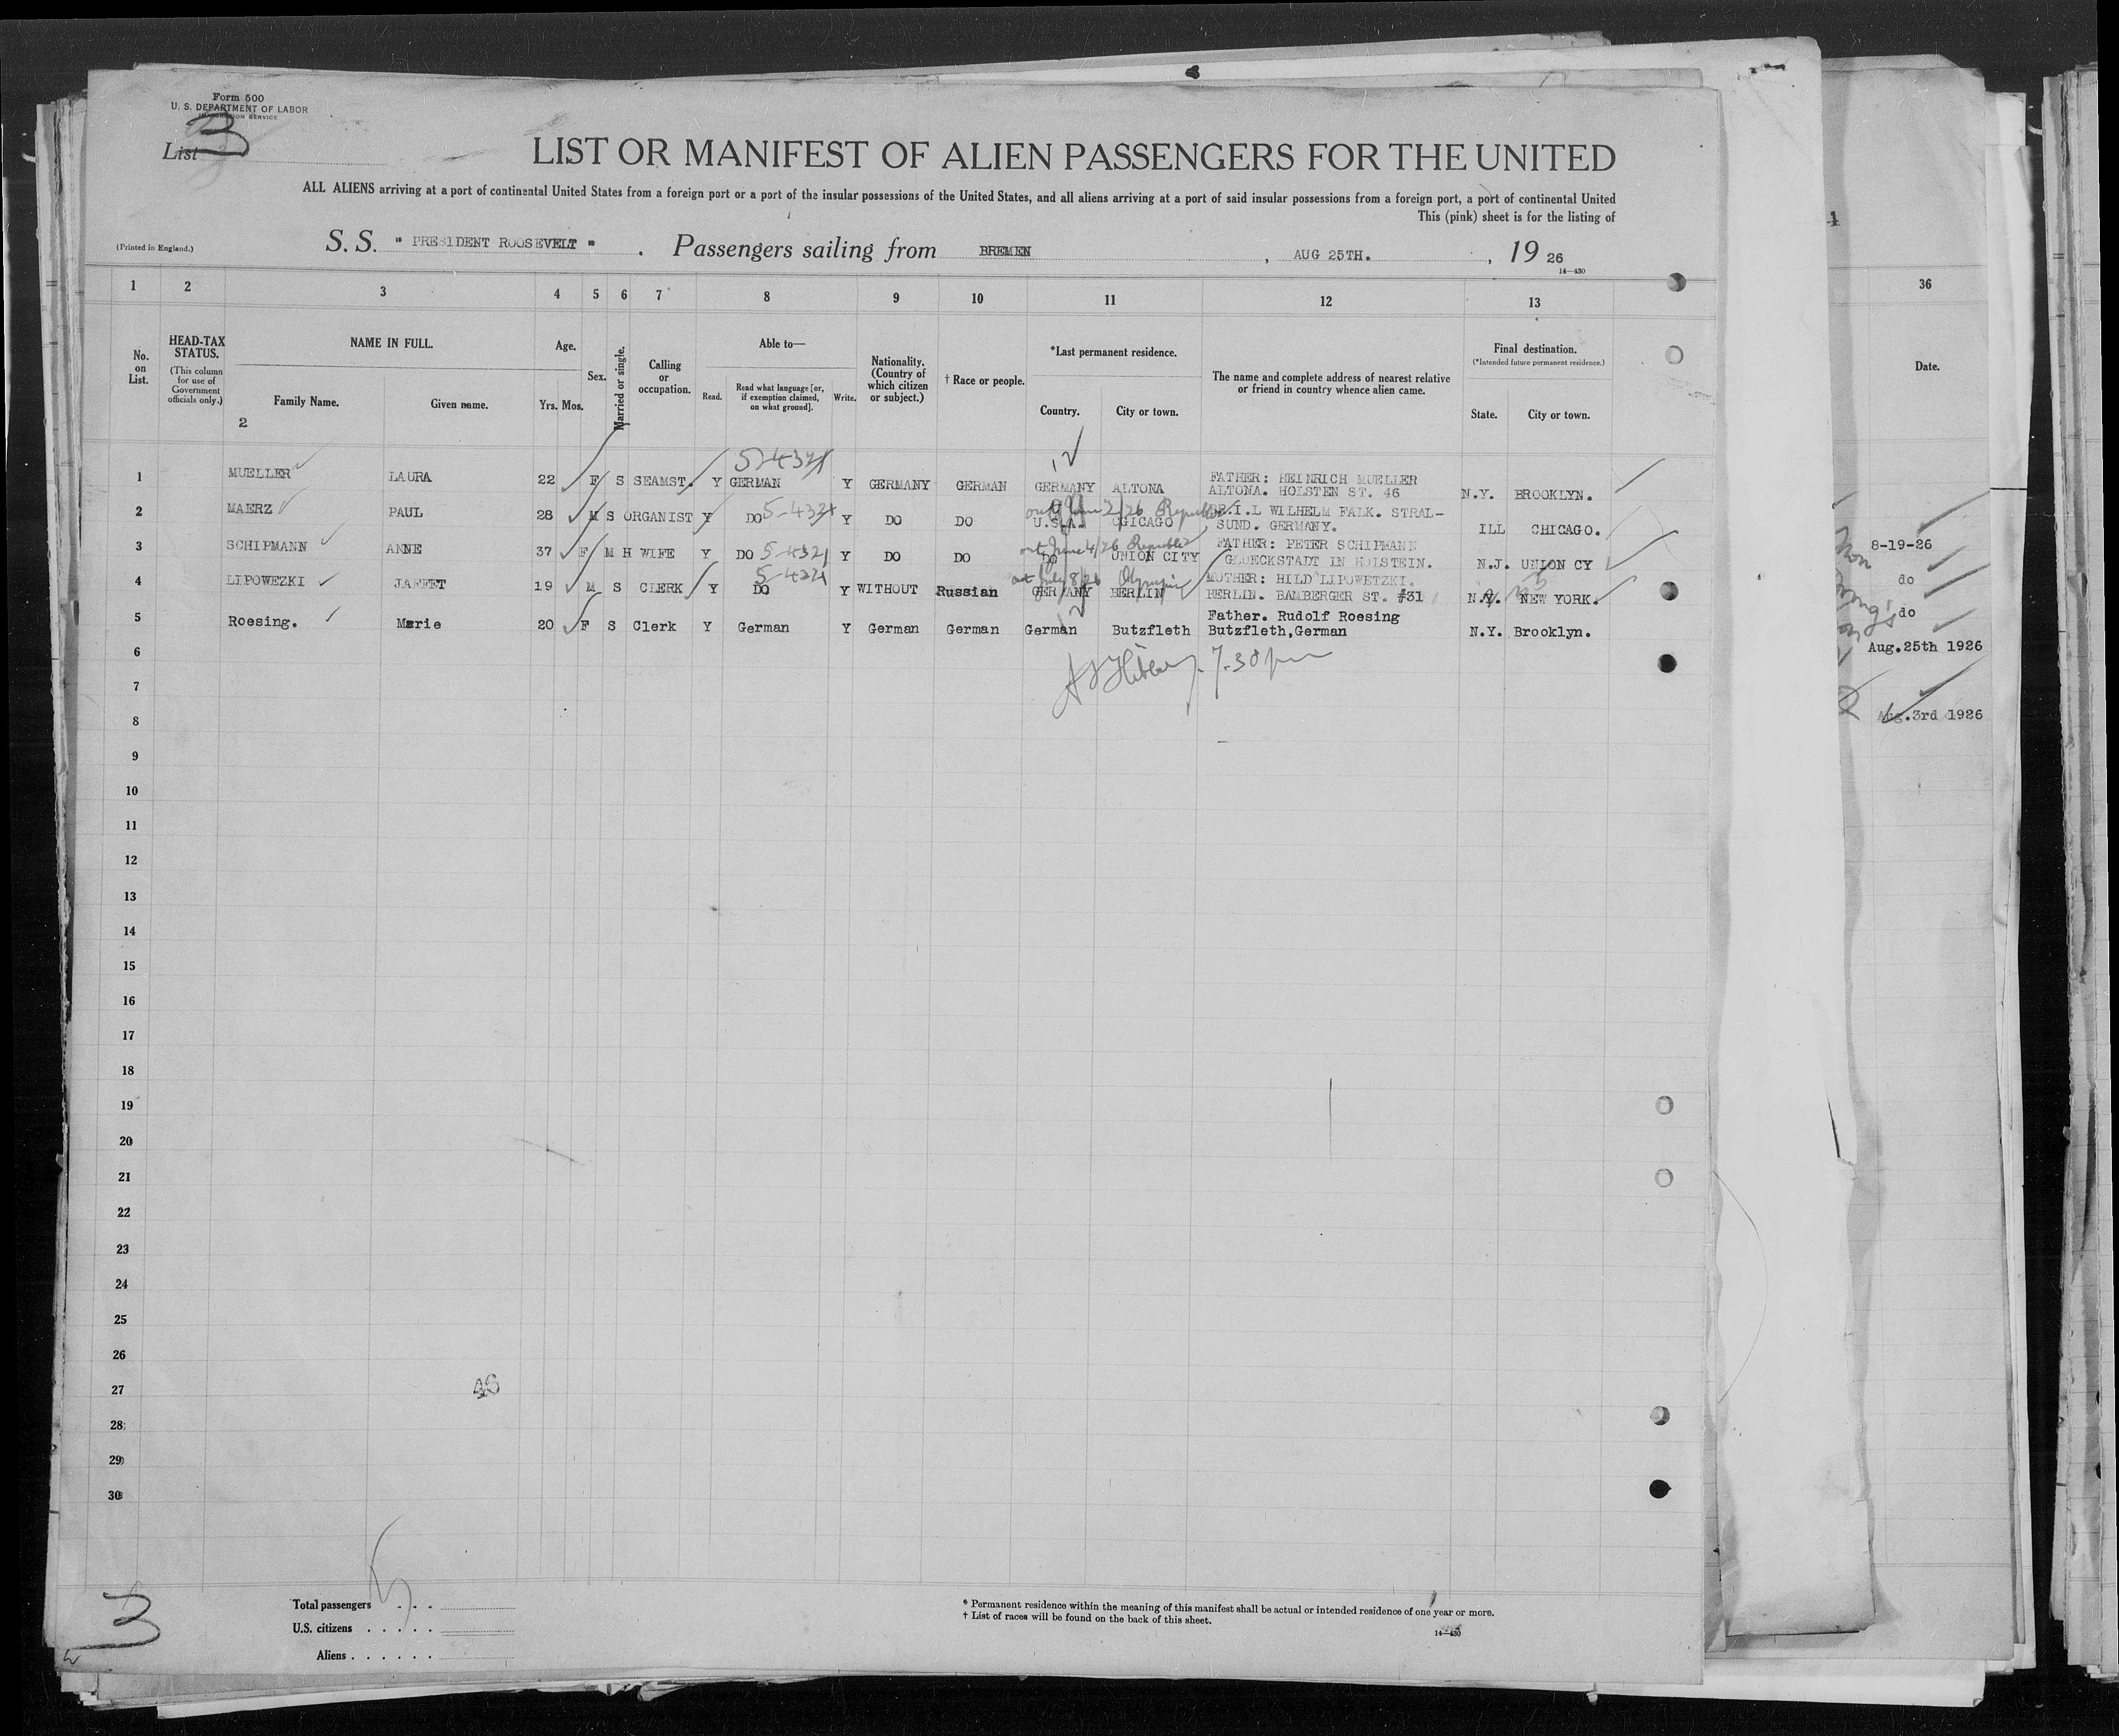 Form 500
U. S. DEPARTMENT OF LABOR
IMMIGRATION SERVICE
List 3
LIST OR MANIFEST OF ALIEN PASSENGERS FOR THE UNITED
ALL ALIENS arriving at a port of continental United States from a foreign port or a port of the insular possessions of the United States, and all aliens arriving at a port of said insular possessions from a foreign port, a port of continental United
This (pink) sheet is for the listing of
(Printed in England.)
S. S. " PRESIDENT ROOSEVELT " . Passengers sailing from BREMEN , AUG 25TH. , 19 26
14—430
1 2 3 4 5 6 7 8 9 10 11 12 13
No. on List.
HEAD-TAX STATUS.
(This column for use of Government officials only.)
NAME IN FULL.
Family Name. Given name.
2
Age.
Yrs. Mos.
Sex.
Married or single.
Calling or occupation.
Able to—
Read.
Read what language [or, if exemption claimed, on what ground].
Write.
Nationality. (Country of which citizen or subject.)
† Race or people.
*Last permanent residence.
Country. City or town.
The name and complete address of nearest relative or friend in country whence alien came.
Final destination.
(*Intended future permanent residence.)
State. City or town.
5-4321
1 MUELLER LAURA 22 F S SEAMST. Y GERMAN Y GERMANY GERMAN GERMANY ALTONA FATHER: HEINRICH MUELLER
ALTONA. HOLSTEN ST. 46 N.Y. BROOKLYN.
2 MAERZ PAUL 28 M S ORGANIST Y DO 5-4321 Y DO DO U.S.A. CHICAGO WILHELM FALK. STRAL-
SUND. GERMANY. ILL CHICAGO.
out June 4/26 Republic
3 SCHIPMANN ANNE 37 F M H WIFE Y DO 5-4321 Y DO DO DO UNION CITY FATHER: PETER SCHIPMANN
GLUECKSTADT IN HOLSTEIN. N.J. UNION CY
5-4321
out July 8/26 Olympic
4 LIPOWEZKI JAFFET 19 M S CLERK Y DO Y WITHOUT Russian GERMANY BERLIN MOTHER: HILD LIPOWETZKI.
BERLIN. BAMBERGER ST. #31 N.Y. NEW YORK.
5 Roesing. Marie 20 F S Clerk Y German Y German German German Butzfleth Father. Rudolf Roesing
Butzfleth,German N.Y. Brooklyn.
7-30 pm
6
7
8
9
10
11
12
13
14
15
16
17
18
19
20
21
22
23
24
25
26
27
28
29
30
46
3
Total passengers . . .
U.S. citizens . . . . .
Aliens . . . . . .
* Permanent residence within the meaning of this manifest shall be actual or intended residence of one year or more.
† List of races will be found on the back of this sheet.
14—430
36
Date.
8-19-26
do
do
Aug.25th 1926
Aug.3rd 1926